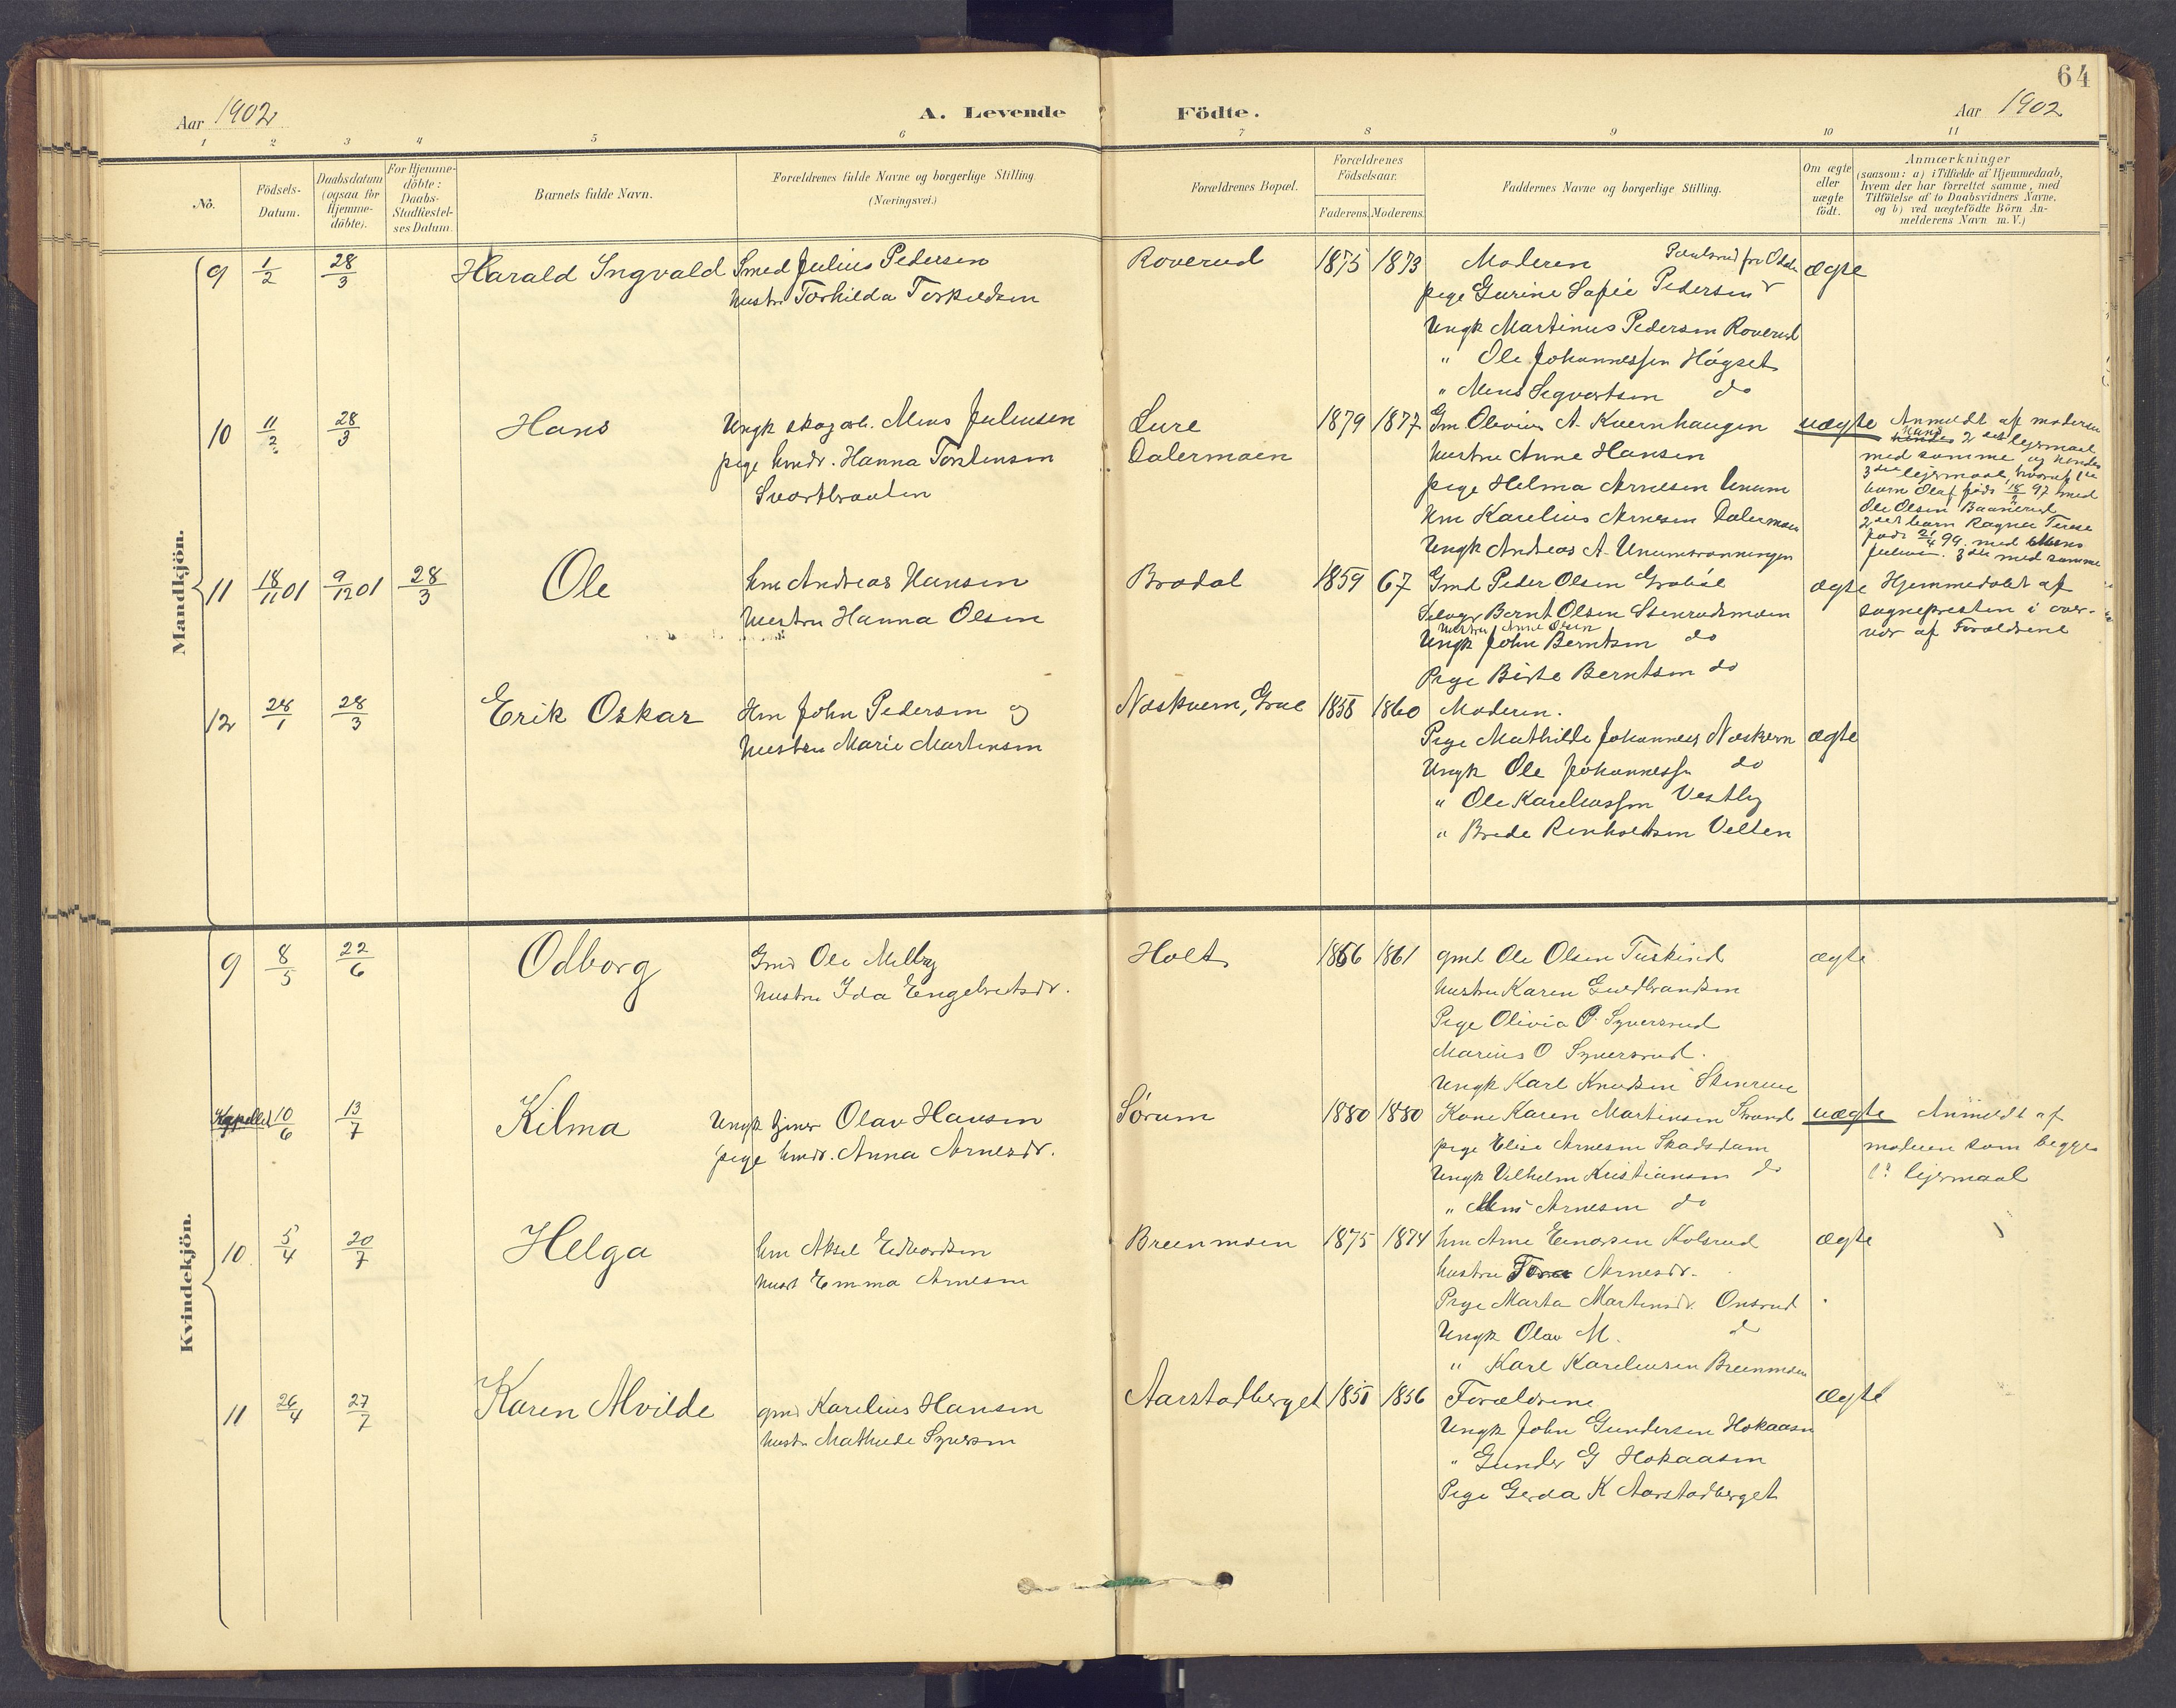 64
Aar 1902
A. Levende Födte.
Aar 1902
1 2 3 4 5 6 7 8 9 10 11
No.
Födsels-Datum.
Daabsdatum (ogsaa for Hjemme-döbte).
For Hjemme-döbte: Daabs-Stadfæstel-ses Datum.
Barnets fulde Navn.
Forældrenes fulde Navne og borgerlige Stilling (Næringsvei.)
Forældrenes Bopæl.
Forældrenes Födselsaar.
Faderens. Moderens.
Faddernes Navne og borgerlige Stilling.
Om ægte eller uægte födt.
Anmærkninger
(saasom: a) i Tilfælde af Hjemmedaab,
hvem der har forrettet samme, med
Tilföielse af to Daabsvidners Navne,
og b) ved uægtefödte Börn An-
melderens Navn m. V.)
Mandkjön.
9 1/2 28/3 Harald Ingvald Smed Julius Pedersen Roverud 1875 1873 Moderen ægte
hustru Torhilda Torkildsen
pige Gurine Sofie Pedersen
Ungk Martinus Pedersen Roverud
" Ole Johannessen Högset
" Mens Segvartsen do
10 11/2 28/3 Hans Ungk skogarb. Mens Juliusen Lure 1879 1877 Gm Olivius A. Kvernhaugen uægte Anmeldt af moderen
pige hmdr. Hanna Torstensen Dalermoen hustru Anne Hansen
Svartbraaten pige Helma Arnesen Unum
Hm Karelius Arnesen Dalermoen
Ungk Andreas A. Unumsrønningen
hans 2det lejermaal
med samme og hendes
3die lejermaal, hvoraf 1te
barn Olaf født 18/2 97 med
Ole Olsen Baanerud
2det barn Ragna Terese
født 21/4 99 med Mens
Juliusen. 3die med samme
11 18/11 01 9/12 01 28/3 Ole hm Andreas Hansen Brodal 1859 67 Gmd Peder Olsen Grøbøl ægte Hjemmedøbt af
hustru Hanna Olsen Selveger Bernt Olsen Stenrudsmoen sognepresten i over-
hustru Anne Olsen vær af Forældrene
Ungk John Berntsen do
Pige Birte Berntsen do
12 28/1 28/3 Erik Oskar Hm John Pedersen og Noskvern, Grue 1858 1860 Moderen.
hustru Marie Martinsen Pige Mathilde Johannes Noskvern ægte
Ungk Ole Johannessen do
" Ole Kareliussen Vestby
" Brede Renholdtsen Velten
Kvindekjön.
9 8/5 22/6 Odborg Gmd Ole Melby Holt 1866 1861 gmd Ole Olsen Tuskind ægte
hustru Ida Engebretsdr. hustru Karen Gudbrandsen
Pige Olivia P. Syversrud
Marius O Syversrud.
Ungk Karl Knudsen Stenrue
10/6 13/7 Kilma Ungk tjener Olav Hansen Sørum 1880 1880 Kone Karen Martinsen Strand uægte Anmeldt af
pige hmdr. Anna Arnesdr. pige Elise Arnesen Skadsdam moderen som begges
Ungk Vilhelm Kristiansen do 1ste lejermaal
" Mens Arnesen do
10 5/4 20/7 Helga hm Aksel Edvardsen Breenmoen 1875 1874 hm Arne Einarsen Kolsrud ægte
hust Emma Arnesen hustru Tora Arnesdr.
Pige Marta Martinsdr. Onsrud
Ungk Olav M. do
" Karl Kareliusen Breenmoen
11 26/4 27/7 Karen Alvilde gmd Karelius Hansen Aarstadberget 1851 1856 Forældrene ægte
hustr Mathilde Syversen Ungk John Gundersen Hokaasen
" Gunder G Hokaasen
Pige Gerda K Aarstadberget